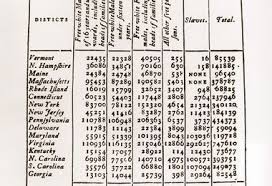 DISTRICTS
Free white Males of 16 years and upwards, including heads of families.
Free white Males under sixteen years.
Free white Females, including heads of families.
All other free persons.
Slaves.
Total.
Vermont 22435 22328 40505 255 16 85539
N. Hampshire 36086 34851 70160 630 158 141885
Maine 24384 24748 46870 538 NONE 96540
Massachusetts 95453 87289 190582 5463 NONE 378787
Rhode Island 16019 15799 32652 3407 948 68825
Connecticut 60523 54403 117448 2808 2764 237946
New York 83700 78122 152320 4654 21324 340120
New Jersey 45251 41416 83287 2762 11423 184139
Pennsylvania 110788 106948 206363 6537 3737 434373
Delaware 11783 12143 22384 3899 8887 59094
Maryland 55915 51339 101395 8043 103036 319728
Virginia 110936 116135 215046 12866 292627 747610
Kentucky 15154 17057 28922 114 12430 73677
N. Carolina 69988 77506 140710 4975 100572 393751
S. Carolina 35576 37722 66880 1801 107094 249073
Georgia 13103 14044 25739 398 29264 82548